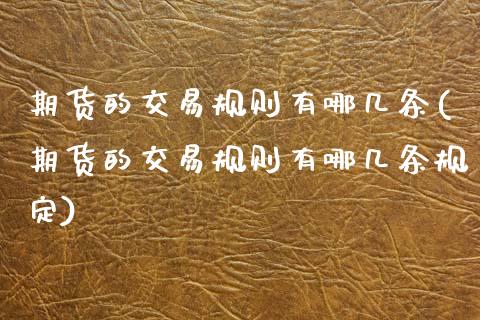 期货的交易规则有哪几条(
期货的交易规则有哪几条规
定)